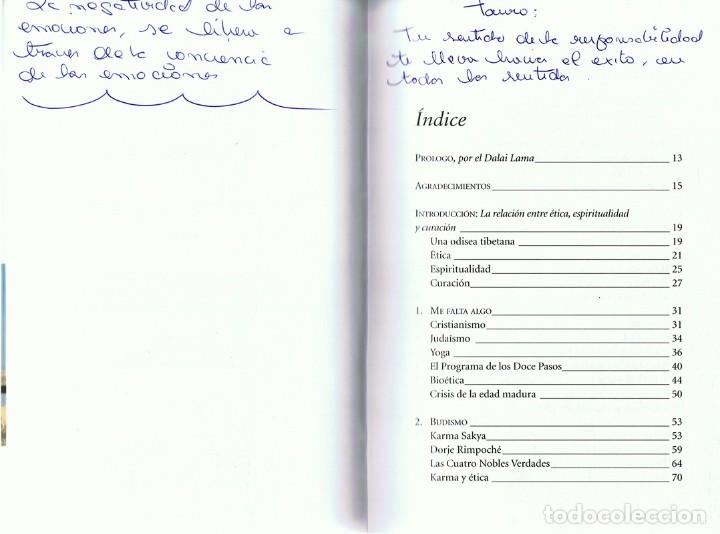 La negatividad de las
emociones, se libera a
traves de la conciencia
de las emociones
Tauro:
Tu sentido de la responsabilidad
te lleva hacia el exito, en
todos los sentidos.
Índice
PROLOGO, por el Dalai Lama 13
AGRADECIMIENTOS 15
INTRODUCCIÓN: La relación entre ética, espiritualidad
y curación 19
Una odisea tibetana 19
Ética 21
Espiritualidad 25
Curación 27
1. ME FALTA ALGO 31
Cristianismo 31
Judaísmo 34
Yoga 36
El Programa de los Doce Pasos 40
Bioética 44
Crisis de la edad madura 50
2. BUDISMO 53
Karma Sakya 53
Dorje Rimpoché 59
Las Cuatro Nobles Verdades 64
Karma y ética 70
todocoleccion